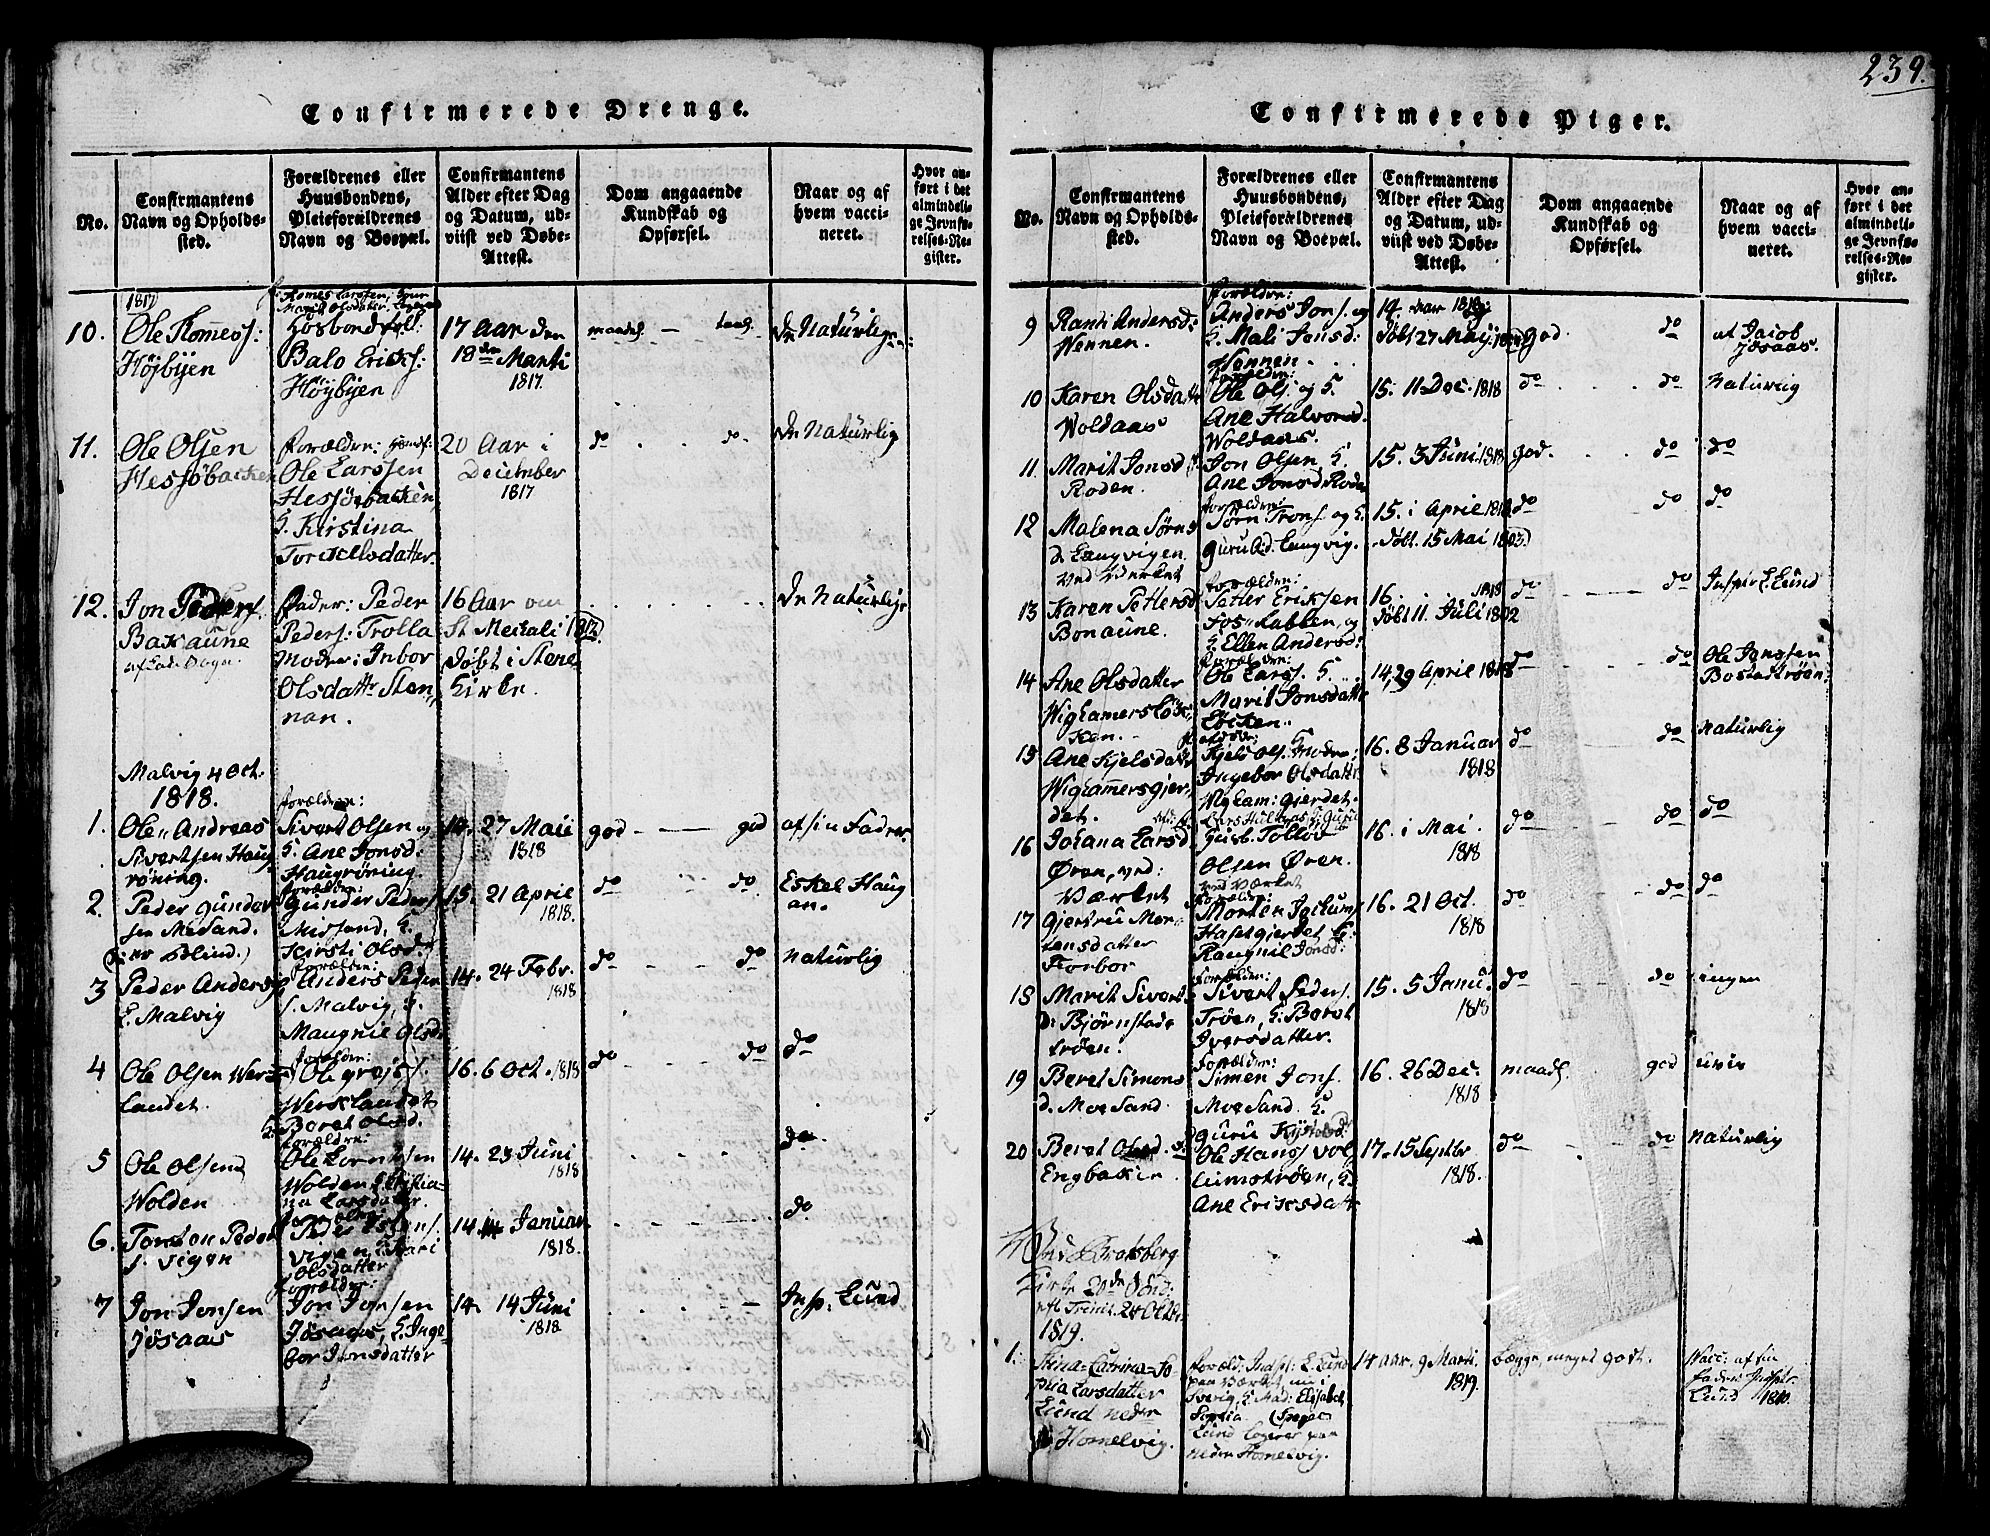 239.
Confirmerede Drenge.
No.
Confirmantens
Navn og Opholds-
sted.
Forældrenes eller
Huusbondens,
Pleieforældrenes
Navn og Boepæl.
Confirmantens
Alder efter Dag
og Datum, ud-
viist ved Døbe-
Attest.
Dom angaaende
Kundskab og
Opførsel.
Naar og af
hvem vacci-
neret.
Hvor an-
ført i det
almindeli-
ge Jevnfø-
relses-Re-
gister.
10.
1817
Højbyen
Balo Ericks:
Høybyen
17 Aar den
18de Marti
1817.
maadel. — taal.
11.
Ole Olsen
Hessøbacken
Forældre:
Ole Larssen
Hessøebacken,
H. Kirstina
Torkelsdatter.
20 Aar i
December
1817
do . . do.
De Naturlig
12.
Jon Peders.
Bakaune
Fader: Peder
Peders: Trolla
Moder: Inbor
Olsdatr Sten-
nan.
16 Aar
St Mechali 1817
Døbt i Stene
Kirke.
De Naturlige
Malvig 4 Oct.
1818.
1.
Ole Andreas
Sivertsen Haug
røning.
Forældre:
Sivert Olsen og
H. Ane Jonsd:
Haugrøning.
27 Maii
1818
god — — god
af sin Fader
2.
Peder Gunder
sen Mesand.
(er blind.)
Forældre:
Gunder Peders.
Midsand, H.
Kirsti Olsd.
15. 21 April
1818.
do . . do
Eskel Haug
an.
3
Peder Anders.
L. Malvig
Forældre:
Anders Peder
s. Malvig, H.
Maugnil Olsd.
14. 24 Febr.
1818
do . . do
Naturlig
4
Ole Olsen Werks
landet.
Forældre:
Werkslandet
H. Beret Olsd.
16. 6 Oct. 1818
do . . do
do
5
Ole Olsen
Wolden
Forældre:
Wolden
na Larsdatter.
14. 23 Juni
1818
do
6.
Peder
s. Vigen
Vigen H. Kari
Olsdatter
14. Januar
1818.
do
7
Jon Jonsen
Jøsaas
Forældre:
Jon Jonsen
Jøsaas, H. Inge-
bor Jonsdatter
14. 14 Juni
1818
Insp. Lund
Confirmerede Piger.
No.
Confirmantens
Navn og Opholds-
sted.
Forældrenes eller
Huusbondens,
Pleieforældrenes
Navn og Boepæl.
Confirmantens
Alder efter Dag
og Datum, ud-
viist ved Døbe-
Attest.
Dom angaaende
Kundskab og
Opførsel.
Naar og af
hvem vacci-
neret.
Hvor an-
ført i det
almindeli-
ge Jevnfø-
relses-Re-
gister.
9
Ranti Andersd:
Wennen.
Forældre:
Anders Jons. og
H. Mali Jonsd:
Wennen
14.
Døbt 27 May
god. do
af Jacob
Jøsaas.
10
Karen Olsdatr
Woldaas
Forældre:
Ole Ols. og H.
Ane Halvorsd.
Woldaas.
15. 11 Dec. 1818
do . . do
Naturlig
11
Marit Jonsd.
Roden.
Jon Olsen, H.
Ane Jonsd. Roden
15. 3 Juni. 1818
god. . . do
do
12
Malena Sørns
d. Langvigen.
ved Werket
Forældre:
Sørn Trons. og H.
Guru Langvig.
15. i April 1818
Døbt. 15 Mai 1803.
do do
do
13
Karen Petters.
Bonaune.
Forældre:
Petter Eriksen
og
H. Ellen Andersd:
16. . . 1818
Døbt 11. Juli 1802
do . . do
Inspr L Lund
14
Ane Olsdatter
Forældre:
Ole Larss. H.
Marit Jonsdatr
14, 29 April 1818
do do
Ole Jonssen
Bostadtrøen
15
Ane Kjelsdatr
Wighammersgjer,
det.
Kjels Ols. Moder:
Ingebor Olsdatr
Wigham: gierdet.
16. 8 Januar
1818
do do
Naturlig
16
Johana Larsd
Øren, ved:
Værket
Olsen Øren.
ved Værket
16. i Mai
1818
do do
do
17
Gjertru Mor-
tensdatter
Korbor
Forældre:
Morten
Hasetgierdet H.
Raugnil Jonsd:
16. 21 Oct.
1818
do do
do
18
Marit Sivert
d: Bjørnstad
trøen.
Forældre:
Sivert Peders.
Trøen, H. Beret
Iversdatter.
15. 5 Janu.
1818
do do
ingen
19
Beret Simons
d. Moesand
Forældre:
Simen Jons.
Moesand. H.
Guru
16. 26 Dec.
1818
maadl. god
uvis
20
Beret Olsd.
Engbaken
Ole Hanss Vol
lumstrøen, H.
Ane Ericksdatr
17. 15 Septbr
1818.
do . do
Naturlig
Ved Bratsberg
Kirke 20de Sønd:
eft. Trinit. 24 Oktbr.
1819.
1.
Stina=Catrina=So
phia Larsdatter
Lund neder
Homelvig.
Foræld: Insp: L. Lund
paa Værket, nu i
H. Mad: Elisabet
Sophia
Lund Logerer paa
neder Homelvig.
14 aar. 9 Marti.
1819.
begge, meget godt.
Vacc: af sin
Fader Inspr
Lund 1810.